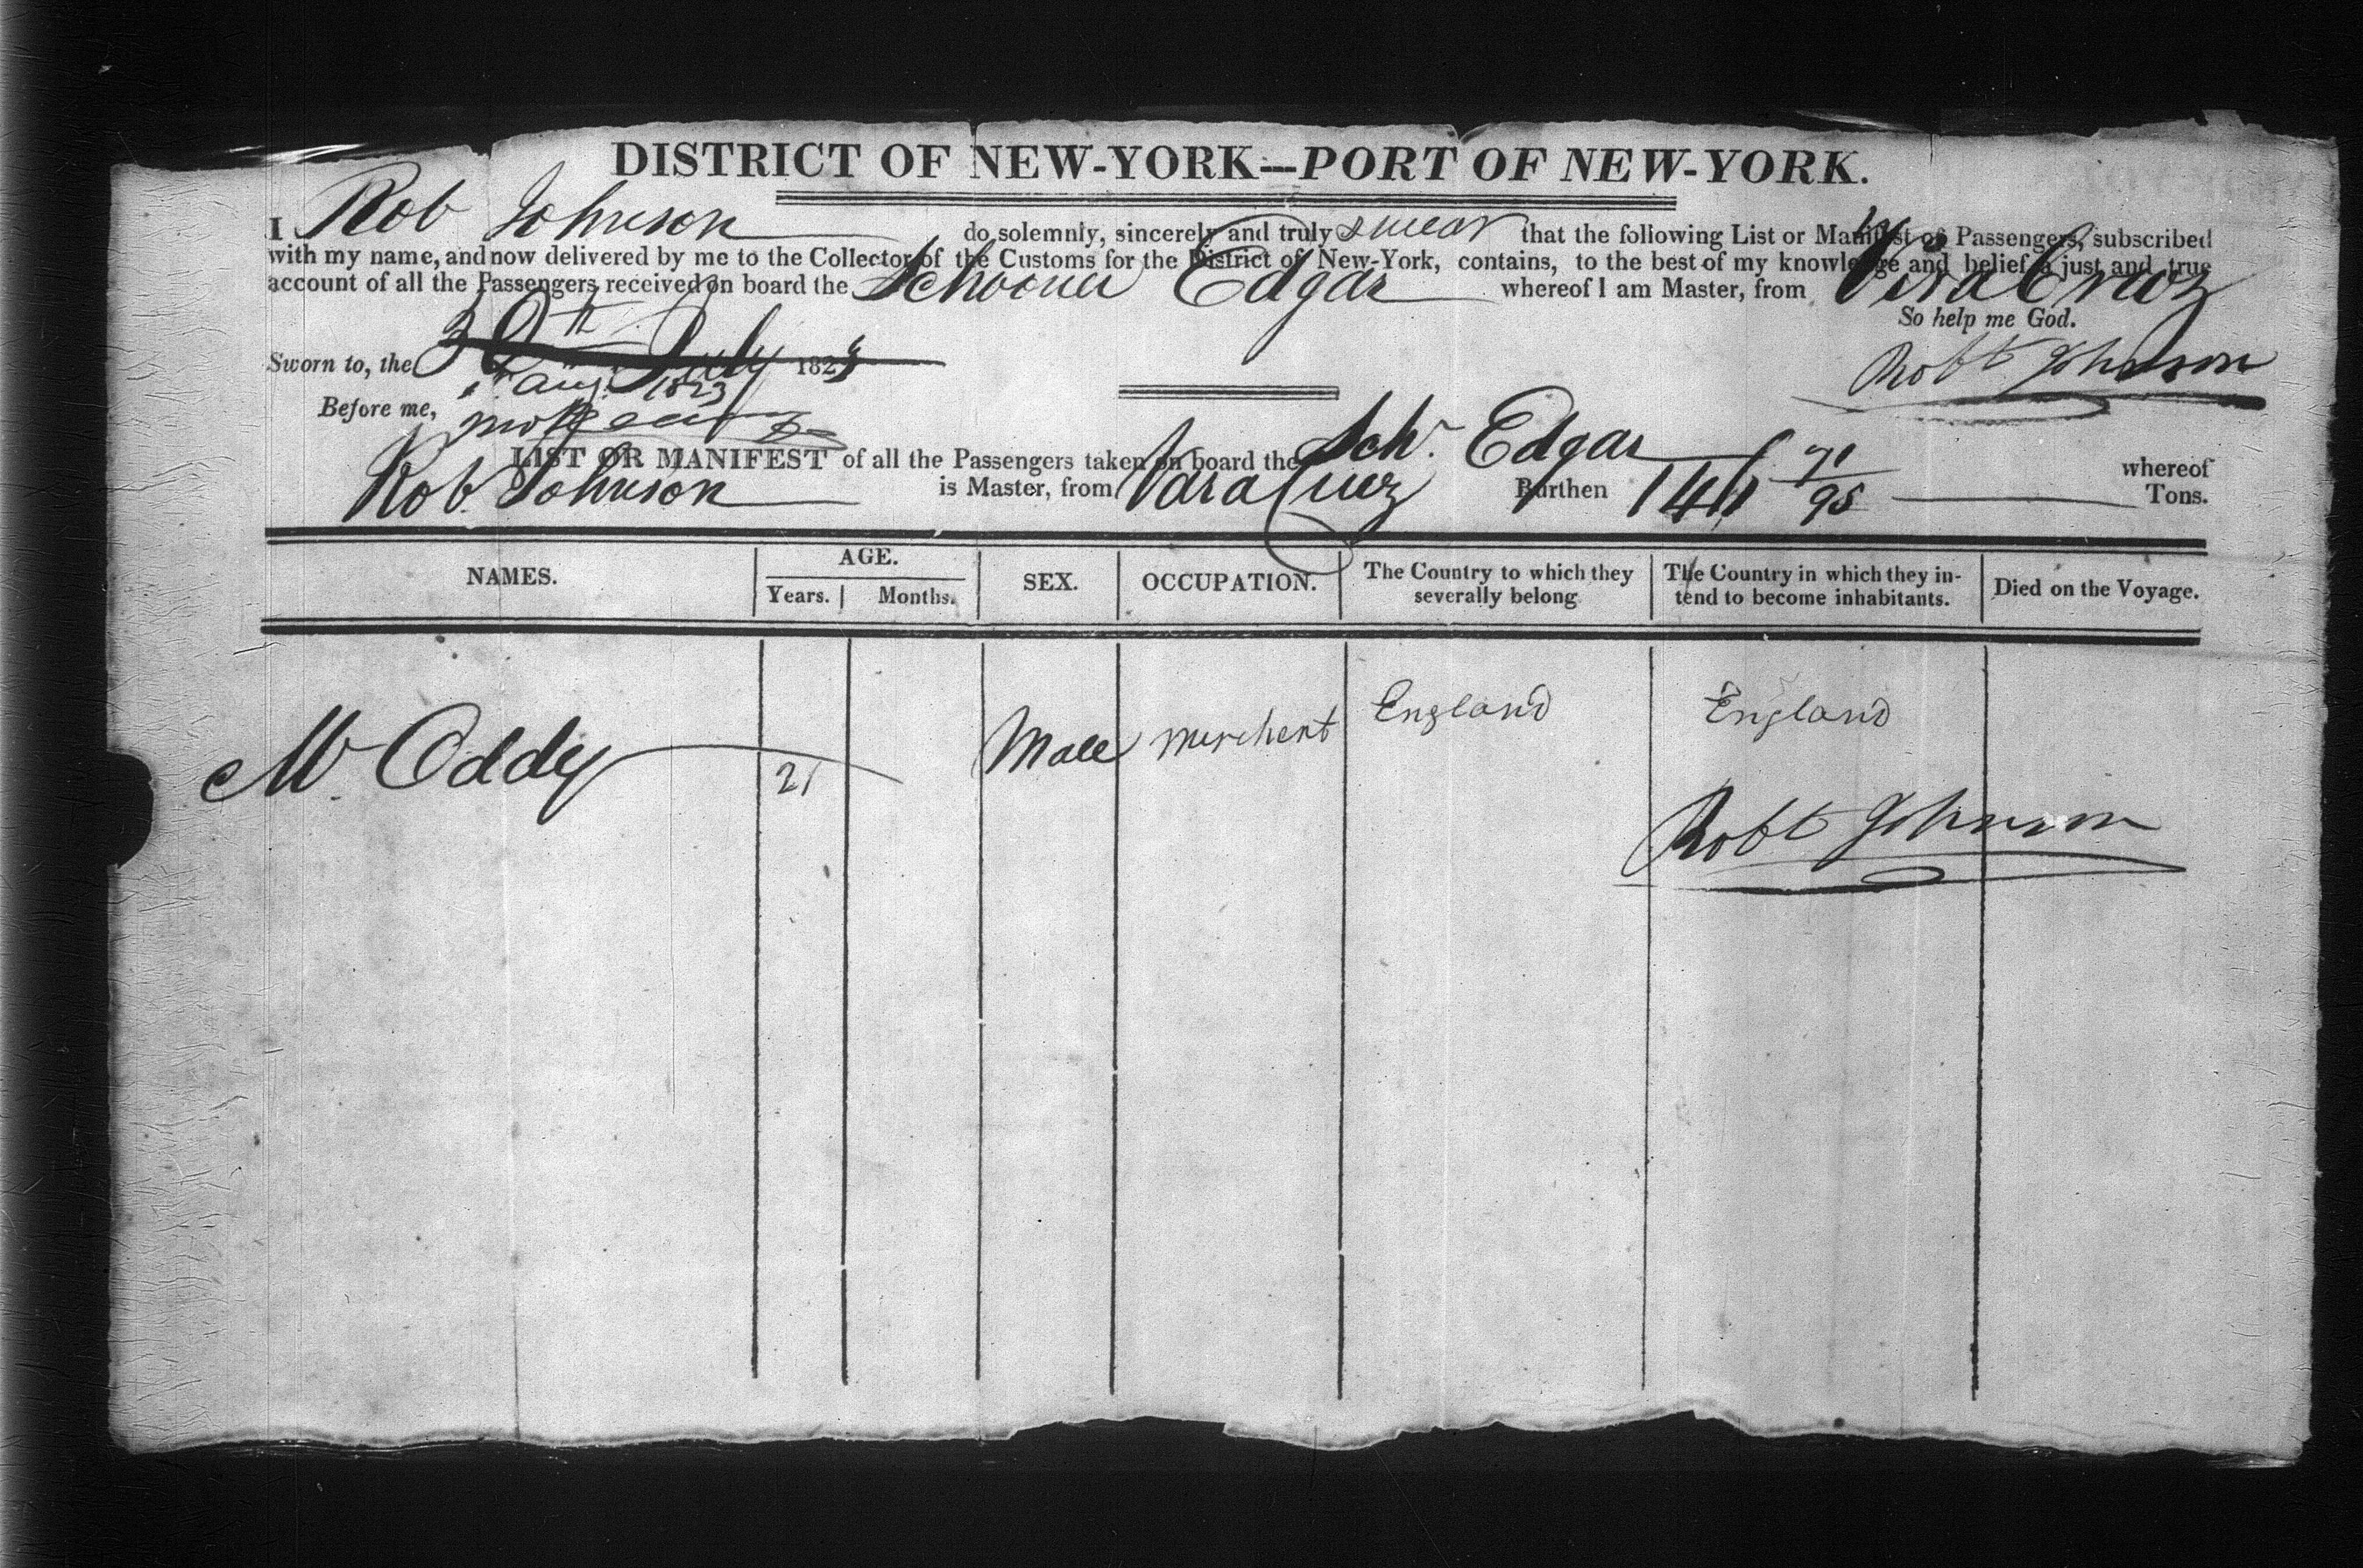 DISTRICT OF NEW-YORK—PORT OF NEW-YORK.
I Rob Johnson do solemnly, sincerely and truly swear that the following List or Manifest of Passengers, subscribed
with my name, and now delivered by me to the Collector of the Customs for the District of New-York, contains, to the best of my knowledge and belief a just and true
account of all the Passengers received on board the Schooner Edgar whereof I am Master, from Vera Cruz
So help me God.
Sworn to, the 30th July 1823
1st Aug. 1823
Robt Johnson
Before me,
LIST OR MANIFEST of all the Passengers taken on board the Schr. Edgar whereof
Rob. Johnson is Master, from Vara Cruz Burthen 141 71/95 Tons.
NAMES. AGE. SEX. OCCUPATION. The Country to which they severally belong The Country in which they intend to become inhabitants. Died on the Voyage.
Years. Months.
Mr Oddy 21 Male merchent England England
Robt Johnson